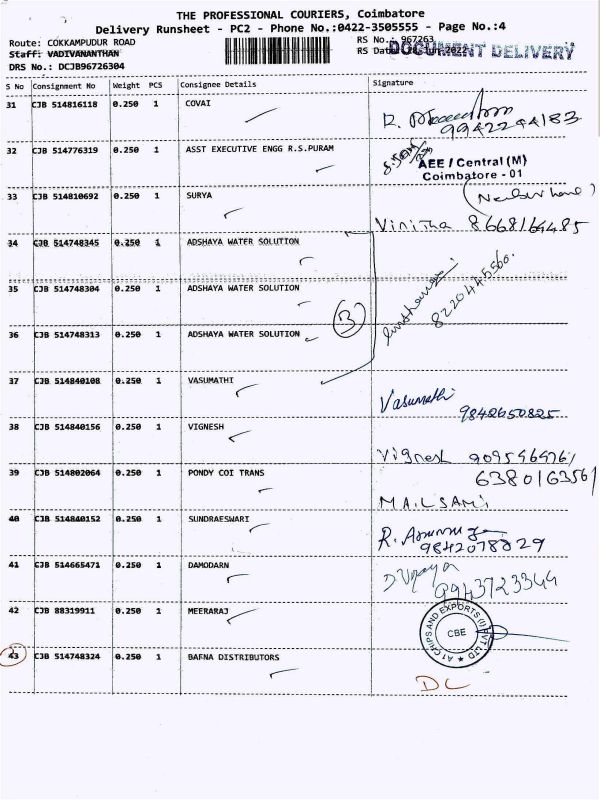 THE PROFESSIONAL COURIERS, Coimbatore
Delivery Runsheet - PC2 - Phone No.:0422-3505555 - Page No.:4
Route: COKKAMPUDUR ROAD
RS No.: 967263
Staff: VADIVANANTHAN
RS Date
DOCUMENT DELIVERY
DRS No.: DCJB96726304
S No Consignment No Weight PCS Consignee Details Signature
31 CJB 514816118 0.250 1 COVAI
9942244183
32 CJB 514776319 0.250 1 ASST EXECUTIVE ENGG R.S.PURAM
AEE / Central (M)
Coimbatore - 01
33 CJB 514810692 0.250 1 SURYA
Vinitha 8668164485
34 CJB 514748345 0.250 1 ADSHAYA WATER SOLUTION
35 CJB 514748304 0.250 1 ADSHAYA WATER SOLUTION
8220445560.
3
36 CJB 514748313 0.250 1 ADSHAYA WATER SOLUTION
37 CJB 514840108 0.250 1 VASUMATHI
Vasumathi
9842650825
38 CJB 514840156 0.250 1 VIGNESH
Vignesh 9095464761
39 CJB 514802064 0.250 1 PONDY COI TRANS
6380163561
MAILSAMI
40 CJB 514840152 0.250 1 SUNDRAESWARI
9842078829
41 CJB 514665471 0.250 1 DAMODARN
D Vijaya
9943723344
42 CJB 88319911 0.250 1 MEERARAJ
A1 CHIPS AND EXPORTS (I) PVT LTD
CBE
43 CJB 514748324 0.250 1 BAFNA DISTRIBUTORS
DC